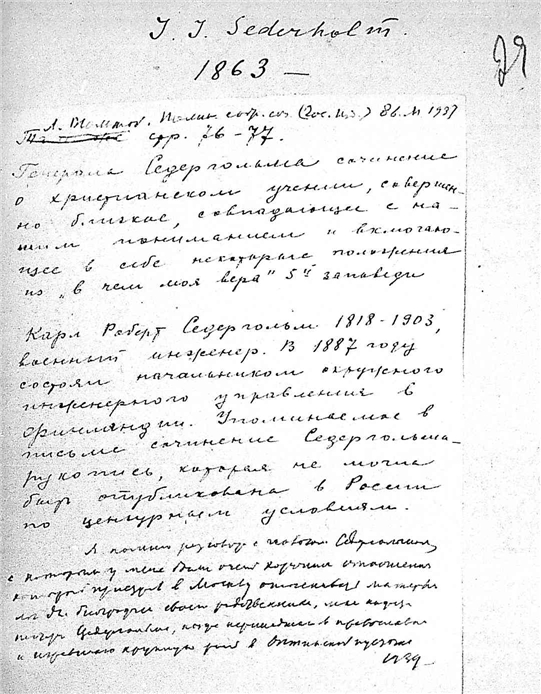 J. J. Sederholm
29
1863 —
Л. Толстой. Полн. собр. соч. (Гос. Из.) 86. М 1937
стр. 76-77.
Генерала Седергольма сочинение
о христианском учении, совершен-
но близкое, совпадающее с на-
шим пониманием и включаю-
щее в себе некоторые положения
из „в чем моя вера" 5й заповеди
Карл Роберт Седергольм 1818-1903,
военный инженер. В 1887 году
состоял начальником окружного
инженерного управления в
Финляндии. Упоминаемое в
письме сочинение Седергольма-
рукопись, которая не могла
быть опубликована в России
по цензурным условиям.
Я помню разговор с Седергольмом,
с которым у меня были очень хорошие отношения
который приездов в Москву отыскивал материа
лы для биографии своего родственника,
Седергольма, перешедшего в православие
и игравшего крупную роль в Оптинской пустыне